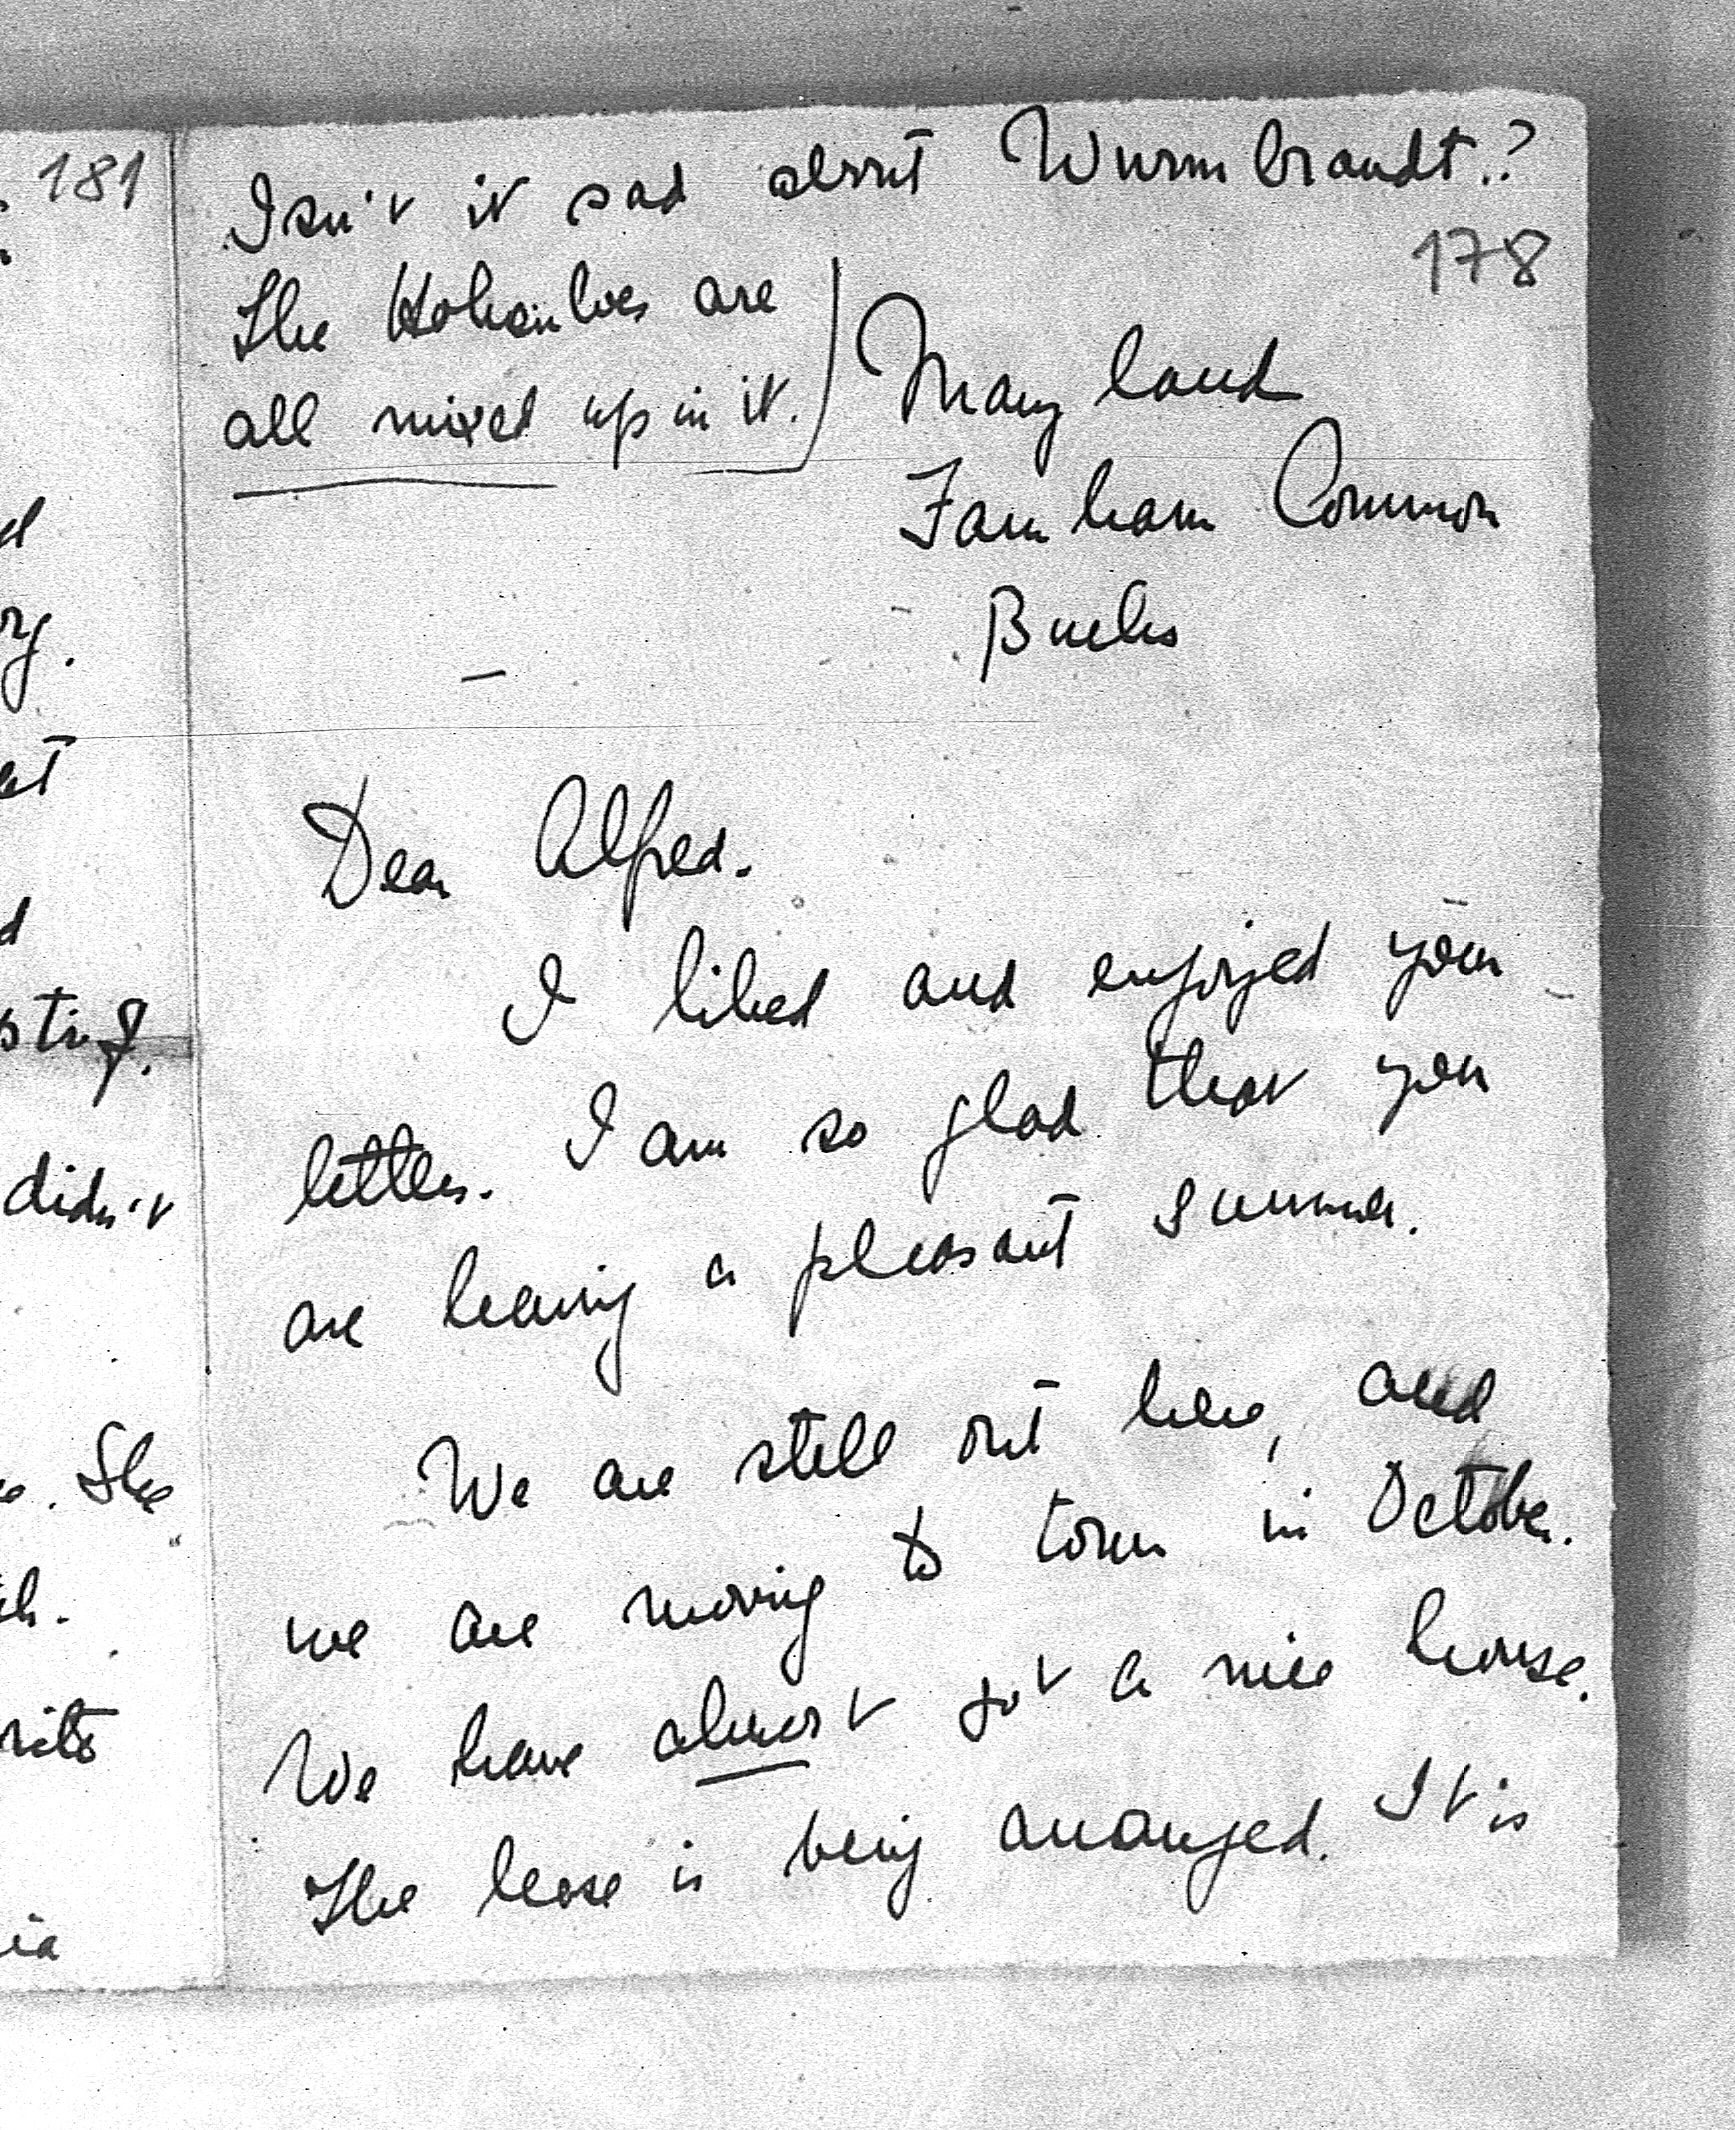 181
Isn't it sad about Wurmbrandt.?
178
The Hohenloes are
all mixed up in it.
Maryland
Farnham Common
Bucks
Dear Alfred.
I liked and enjoyed your
letter. I am so glad that you
are having a pleasant summer.
We are still out here, and
we are moving to town in October.
We have almost got a nice house.
The lease is being arranged. It is
didn't
She